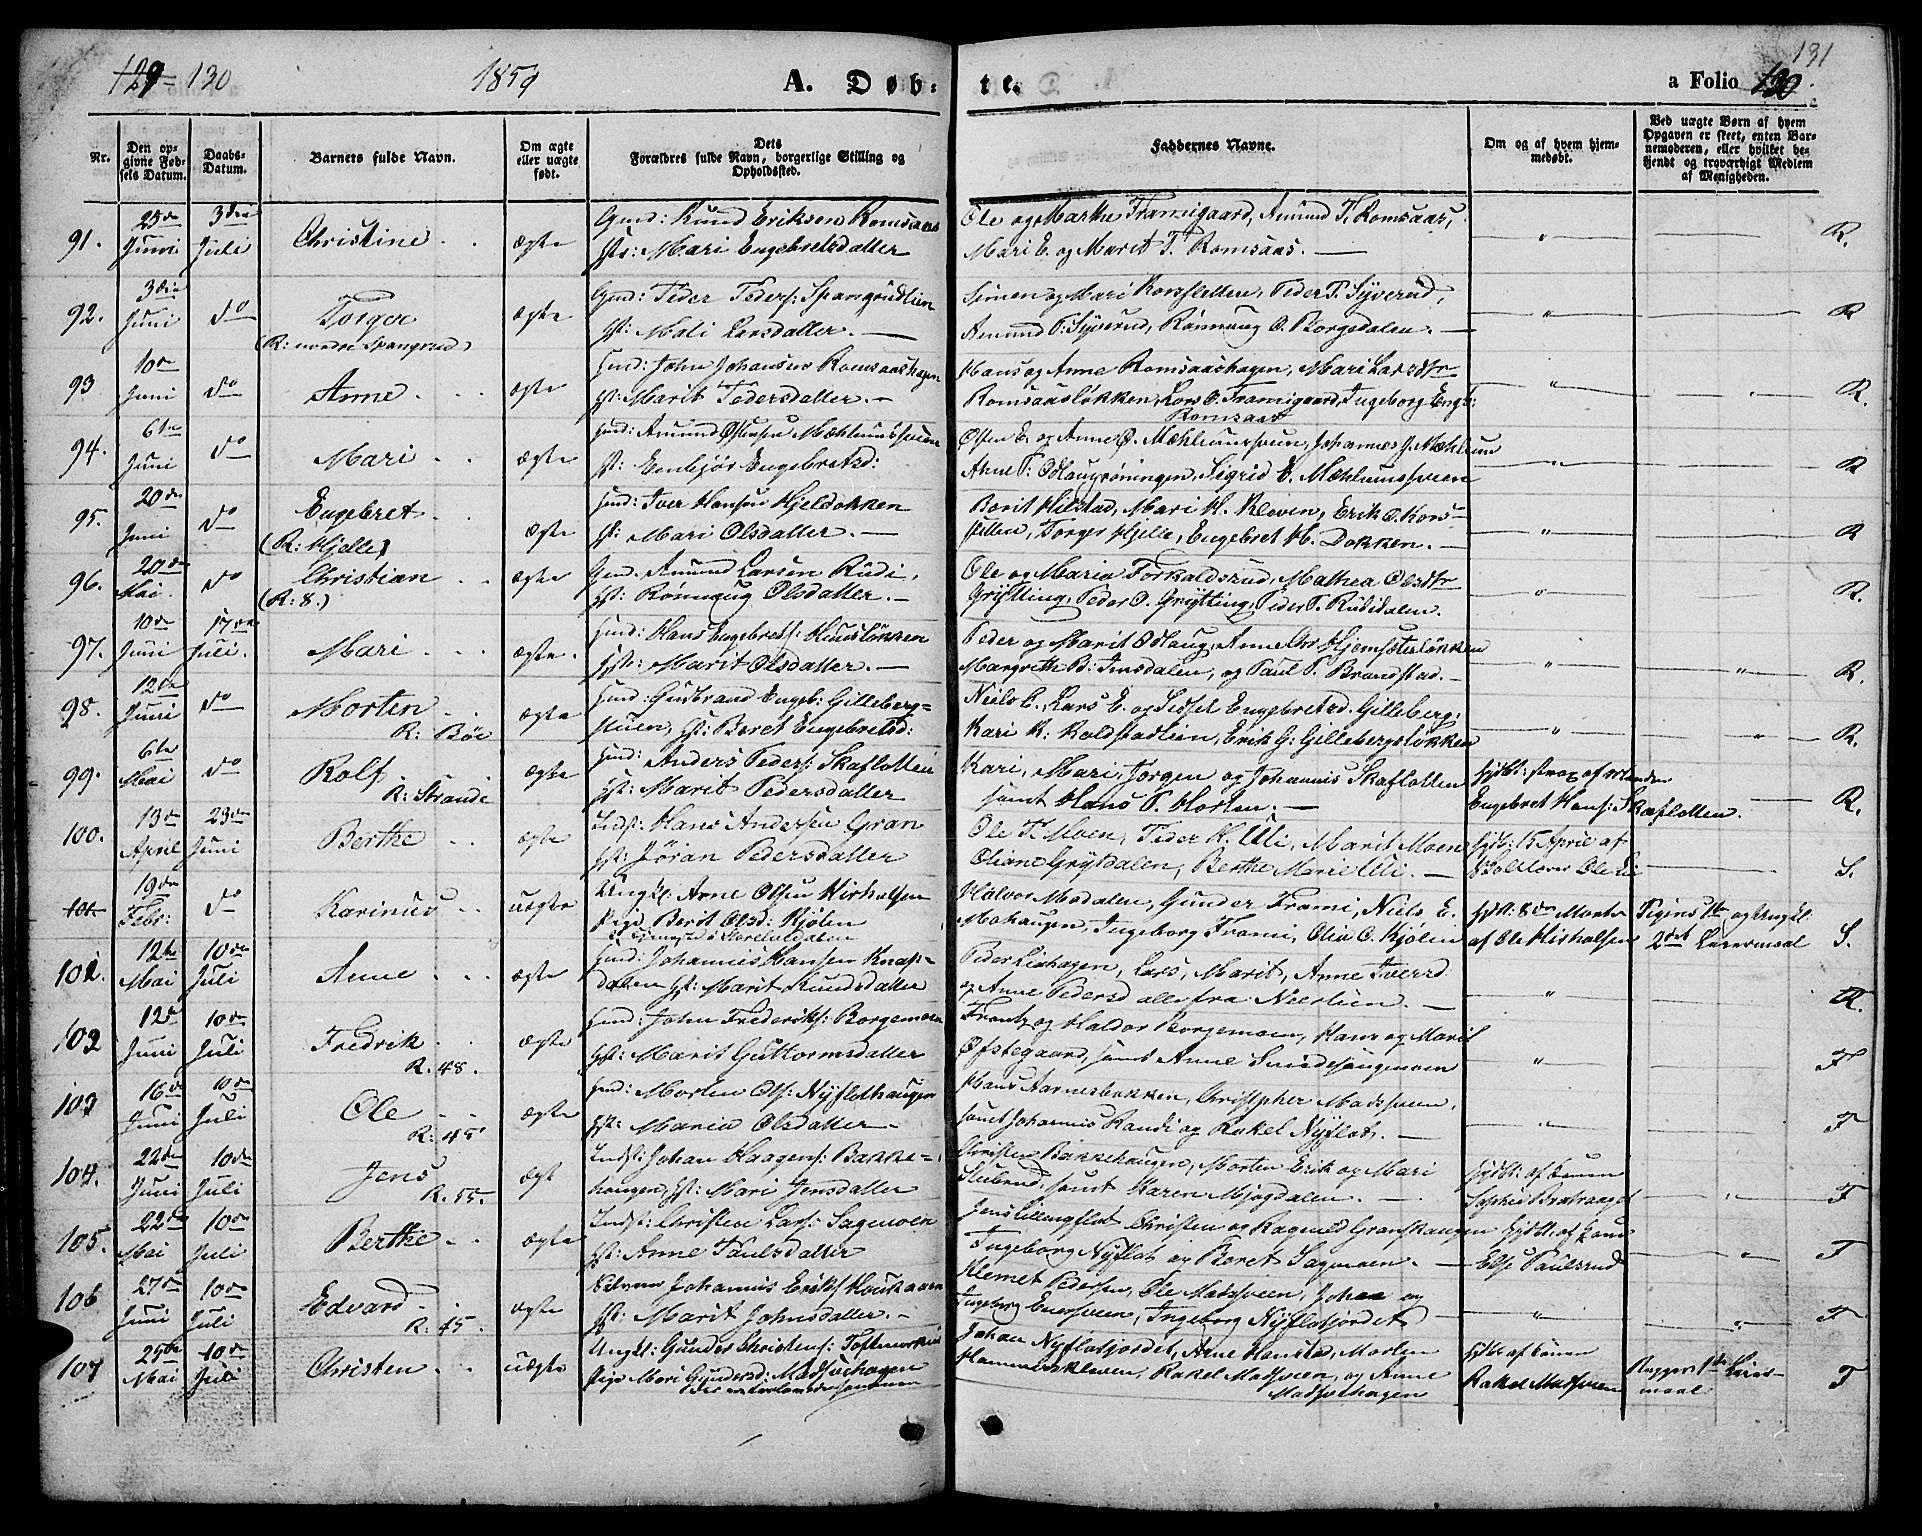 129 130
1859
A. Døb:
te.
a Folio 130.
131
Nr.
Den opgivne Fødsels Datum.
Daabs-Datum.
Barnets fulde Navn.
Om ægte eller uægte født.
Dets Forældres fulde Navn, borgerlige Stilling og Opholdssted.
Faddernes Navne.
Om og af hvem hjemmedøbt.
Ved uægte Børn af hvem Opgaven er skeet, enten Barnemoderen, eller hvilket bekjendt og troværdigt Medlem af Menigheden.
91. 25de Juni 3die Juli Christine ægte
Gmd: Knud Eriksen Romsaas
Hst: Mari Engebretsdatter
Ole og Marthe Framigaard, Amund T. Romsaas,
Mari E. og Marit T. Romsaas.
" R.
92. 3die Juni do Torger ægte
(R: nordre Spangrud)
Gmd: Peder Peders: Spangrudlien
Hst: Mali Larsdatter.
Simen og Mari Korssletten, Peder P. Syverud,
Amund P. Syverud, Rønnaug O. Borgedalen.
" R
93 10de Juni do Anne ægte
Hmd: John Johansen Romsaashagen
Hst: Marit Pedersdatter.
Hans og Anne Romsaashagen, Mari Larsdtr
Romsaasløkken, Lars O. Framigaard, Ingeborg Engb:
Romsaas
" R.
94. 6te Juni do Mari ægte
Hmd: Amund Østensen Mæhlumssveen
Hst: Embjør Engebretsd:
Østen E. og Anne O. Mæhlumssveen, Johannes J. Mæhlum
Anne P. Odlaugrøningen, Sigrid E. Mæhlumssveen
" R
95. 20de Juni do Engebret ægte
(R: Kjelle)
Hmd: Iver Hansen Hjeldokken
Hst: Mari Olsdatter.
Berit Hilstad, Mari H. Kloven, Erik O. Kors-
sletten, Torger Hjelle, Engebret H. Dokken.
" R
96. 20de Mai. do Christian ægte
(R: 8.)
Gmd: Amund Larsen Rudi,
Hst: Rønnaug Olsdatter.
Ole og Maria Forkaldsrud, Mathea Olsdtr
Grytting, Peder O. Grytting, Peder P. Rudidalen.
" R.
97. 10de Juni 17de Juli. Mari ægte.
Hmd: Hans Engebrets: Huusløkken
Hst: Marit Olsdatter.
Peder og Marit Odlaug, Anne Chr. Hjemsæterløkken
Margrethe B: Imsdalen, og Paul P. Brandstad.
" " R.
98. 12te Juni do Morten ægte
R: Bøe
Hmd: Gudbrand Engeb: Gilleberg-
stuen, Hst: Beret Engebretsd:
Niels E., Lars E. og Sidsel Engebretsd. Gilleberg,
Kari K: Koldstadlien, Erik G: Gillebergsløkken
" " R.
99. 6te Mai do Rolf ægte
R: Strande
Hmd: Anders Peders: Skaflotten
Hst: Marit Pedersdatter
Kari, Mari, Jørgen og Johannis Skaflotten
samt Hans P. Horten.
hjdbt: strax af Manden
Engebret Hans: Skaflotten. R.
100. 13de April 23de Juni Berthe ægte
Indst: Hans Andersen Gran
Hst: Jøran Pedersdatter
Ole T. Moen, Peder H. Uli, Marit Moen
Oliane Grytdalen, Berthe Marie Uli.
hjdbt: 15 April af
Skolelærer Ole Lie S.
101. 19de Febr: do Karinus uægte
Ungkl: Arne Olsen Kirholsen
Pige Berit Olsd: Kjølen
Halvor Modalen, Gunder Frami, Niels E.
Mohaugen, Ingeborg Frami, Olia O. Kjølen
hjdbt: 8de Marts
af Ole Kirholsen
Pigens 1te og Ungkl.
2det Leiermaal S.
101. 12te Mai 10de Juli Anne ægte
Hmd: Johannes Hansen Knap-
dalen Hst: Marit Knudsdatter
Peder Liehagen, Lars, Marit, Anne Iversd
og Anne Pedersd alle fra Neerlien.
" R.
102 12te Juni 10de Juli Fredrik ægte
R. 48.
Hmd: John Frederiks: Borgemoen
Hst: Marit Guttormsdatter
Frantz og Haldor Borgemoen, Hans og Marit
Øfstegaard, samt Anne Sundesaugmoen
" F
103 16de Juni 10de Juli Ole ægte
R: 45
Hmd: Morten Ols: Nyflothaugen
Hst: Maria Olsdatter.
Hans Aarnesbakken, Christopher Madssveen,
samt Johannes Randi og Rakel Nyflot.
" F
104. 22de Juni 10de Juli Jens ægt
R. 55.
Indst: Johan Haagens: Bakke-
haugen, Hst: Mari Jensdatter
Christen Bakkehaugen, Morten Erik og Mari
Stubrud, samt Karen Mjogdalen.
hjdbt: af konen
Sophie Bratvanget " F
105. 22de Mai 10de Juli Berthe ægte
Indst: Christen Lars: Sagmoen
Hst: Anne Paulsdatter
Jens Lillengflot Christen og Ragnild Granhaugen
Ingeborg Nyflot og Beret Sagmoen.
hjdbt. af kone
Else Paulsrud " F
106 27de Juni 10de Juli Edvard ægte
R: 45.
Selveier Johannis Eriks: Houkaaen
Hst: Marit Johnsdatter.
Klemet Pedersen, Ole Madssveen, Johan og
Ingeborg Enerssveen, Ingeborg Nyflotsjordet
" " F
107 25de Mai 10de Juli Christen uægte
Ungkl: Gunder Christens: Toftemarken
Pige Mari Gundersd: Madssvehagen
Johan Nyflotsjordet, Arne Hanstad, Morten
Hammerskleven, Rakel Madsveen, og Anne
Madssvehagen
hjdbt. af konen
Rakel Madsveen
Begges 1te Leier-
maal F